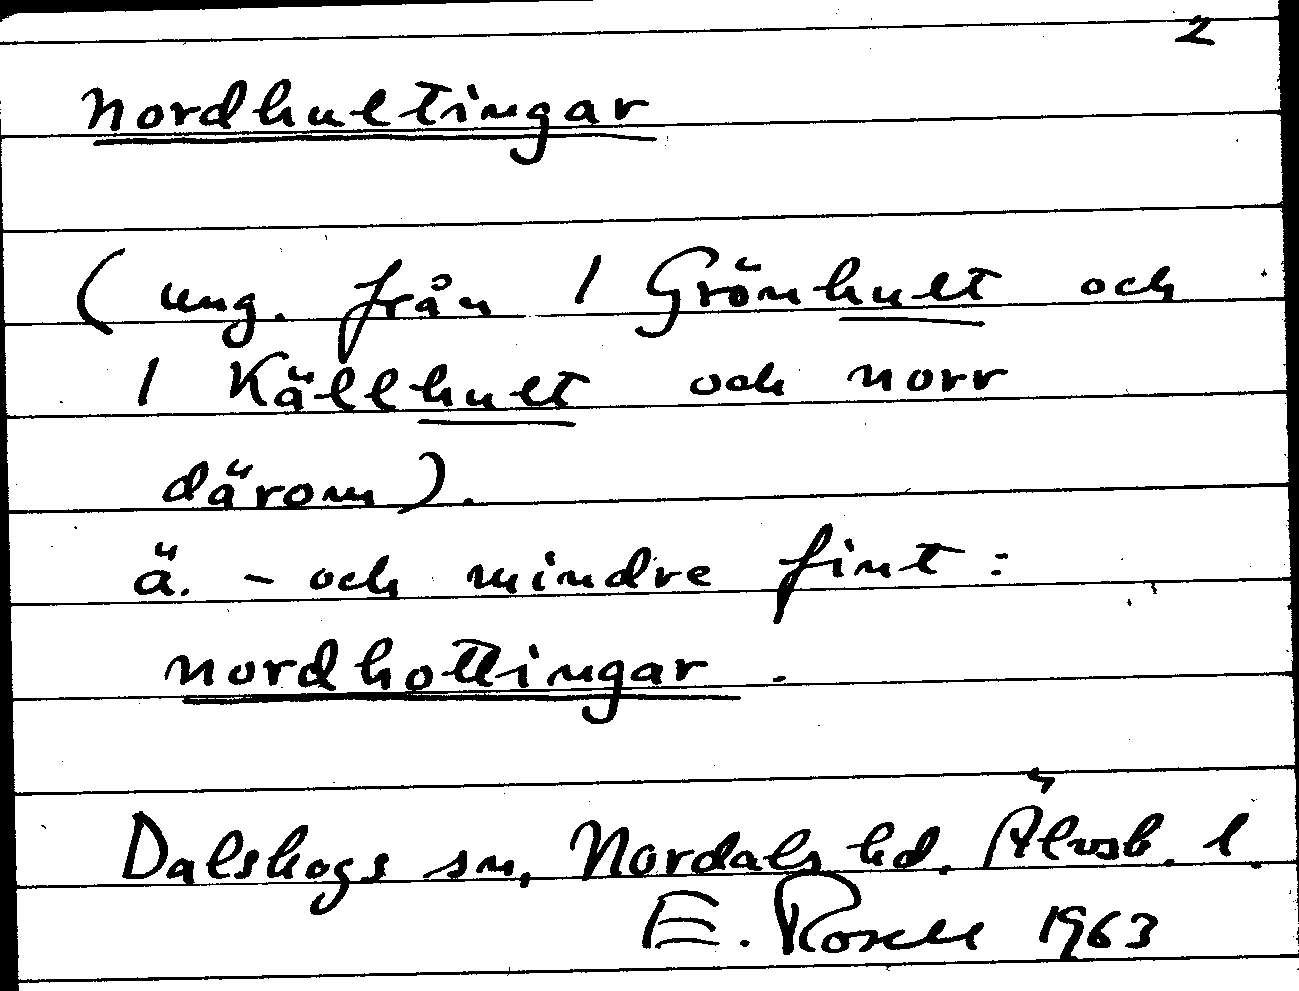 2
nordhultingar
( ung. från / Grönhult och
/ Källhult och norr
därom ).
ä. - och mindre fint :
nordhottingar .
Dalskogs sn, Nordals hd. Älvsb. l.
E. Rosell 1963